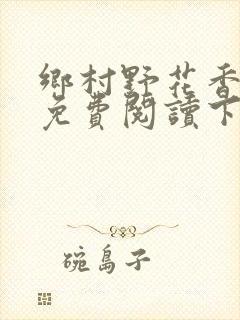 鄉村野花香
免費閱讀下
碗島子